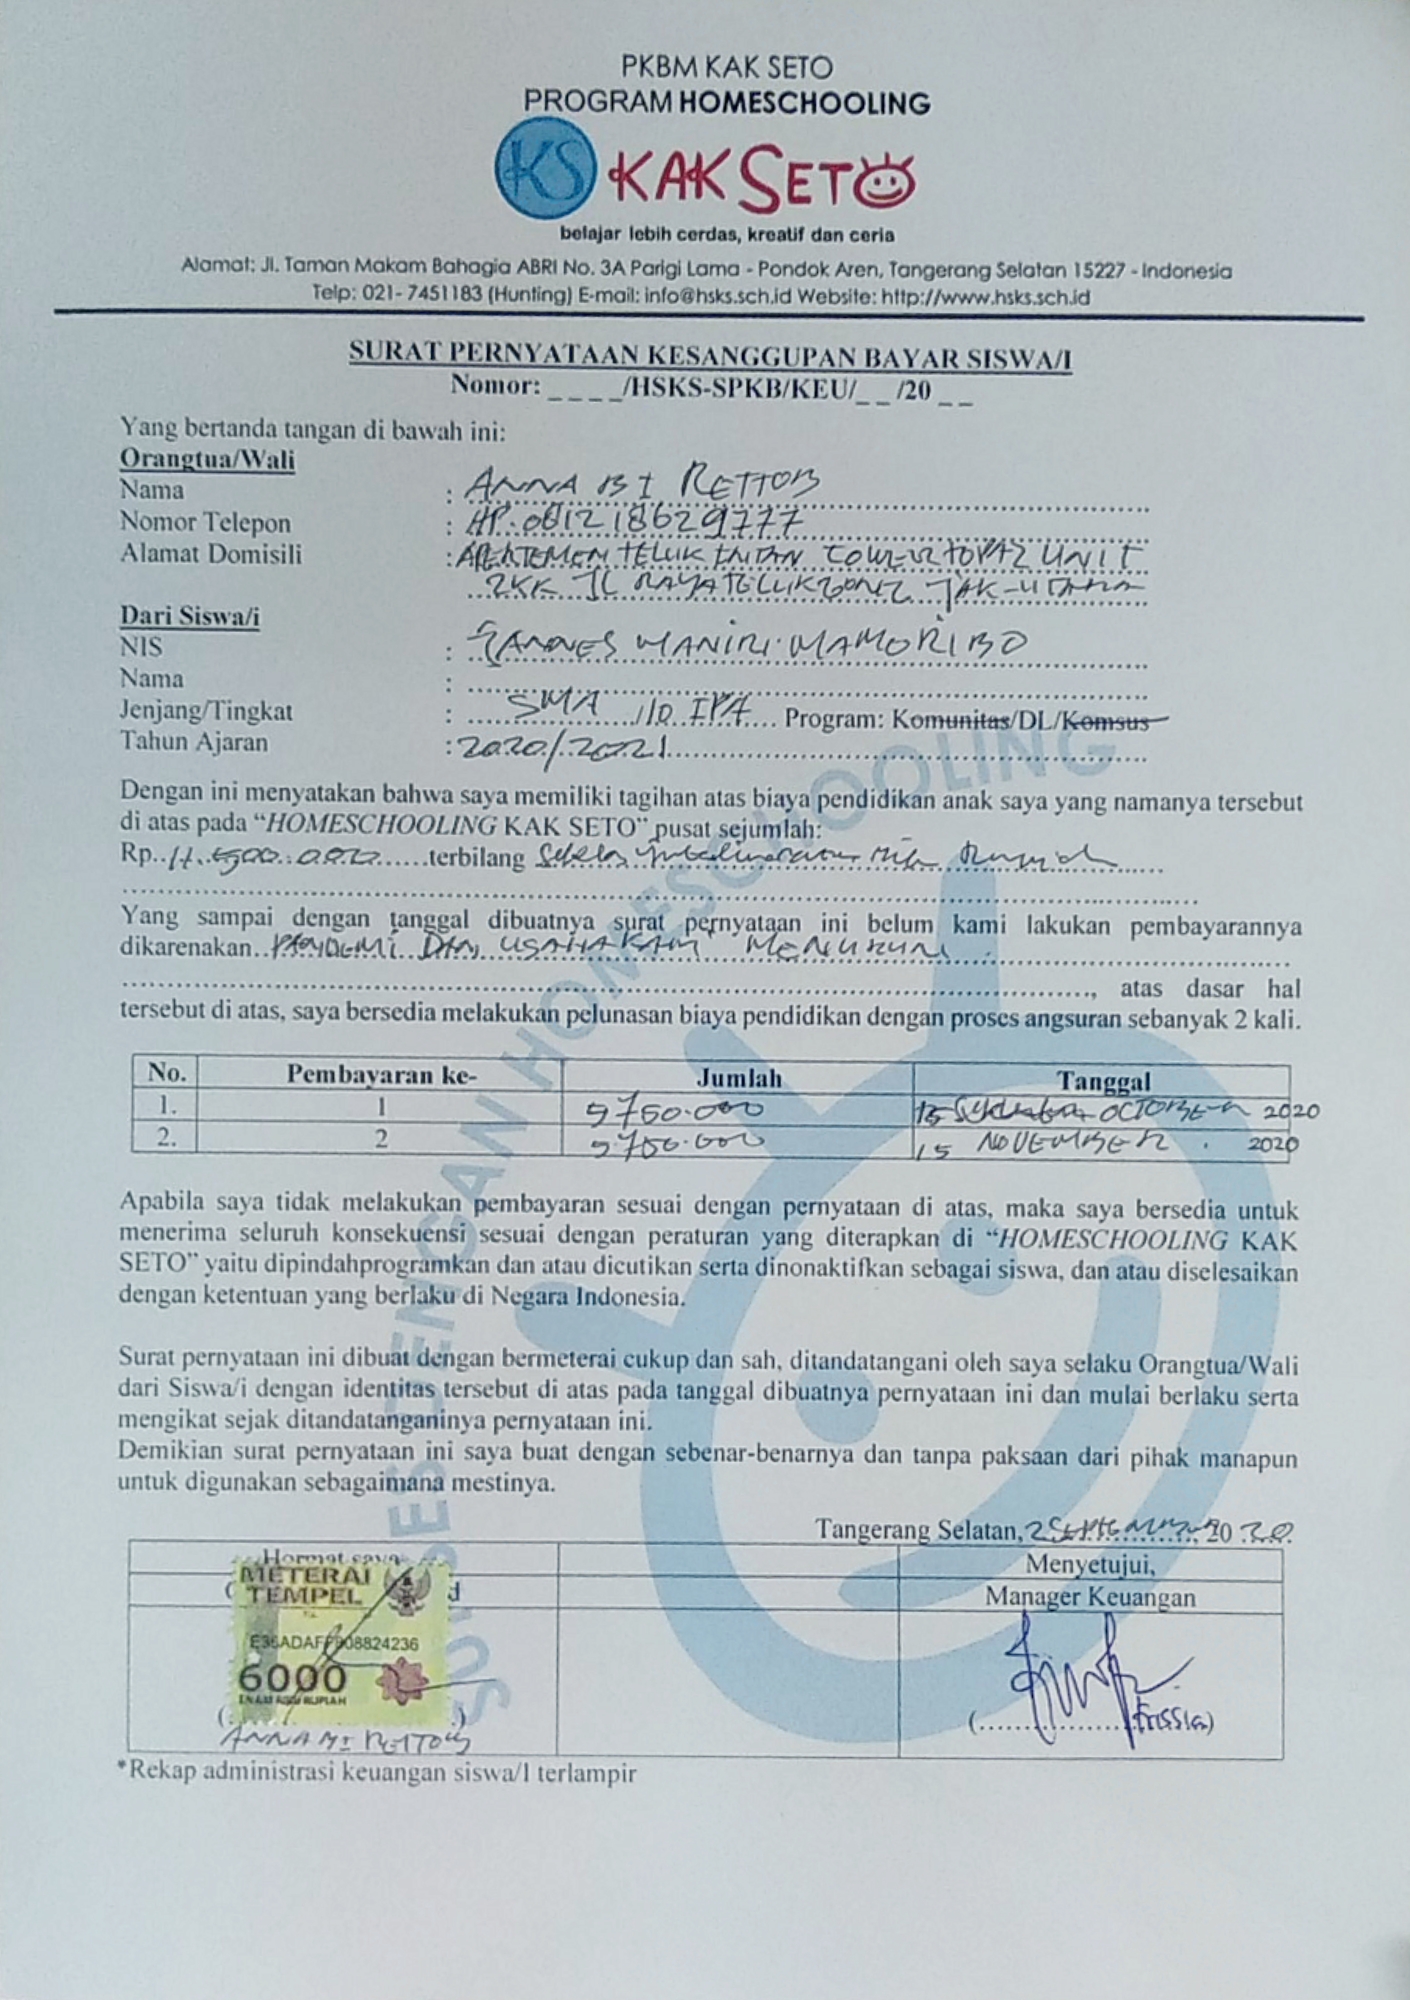 PKBM KAK SETO
PROGRAM HOMESCHOOLING
KS KAK SETO
belajar lebih cerdas, kreatif dan ceria
Alamat: Jl. Taman Makam Bahagia ABRI No. 3A Parigi Lama - Pondok Aren, Tangerang Selatan 15227 - Indonesia
Telp: 021- 7451183 (Hunting) E-mail: info@hsks.sch.id Website: http://www.hsks.sch.id
SURAT PERNYATAAN KESANGGUPAN BAYAR SISWA/I
Nomor: _ _ _ _/HSKS-SPKB/KEU/_ _ /20 _ _
Yang bertanda tangan di bawah ini:
Orangtua/Wali
Nama : ANNA BI RETTOB
Nomor Telepon : HP. 081218629777
Alamat Domisili : APARTEMEN TELUK INTAN TOWER TOPAZ UNIT
2KK JL RAYA TELUK GONG JAK-UTARA
Dari Siswa/i
NIS : MANIRI MAMORIBO
Nama :
Jenjang/Tingkat : SMA /10 IPA Program: Komunitas/DL/Komsus
Tahun Ajaran : 2020/2021
Dengan ini menyatakan bahwa saya memiliki tagihan atas biaya pendidikan anak saya yang namanya tersebut
di atas pada “HOMESCHOOLING KAK SETO” pusat sejumlah:
Rp. 11.500.000 terbilang Sebelas Rupiah
Yang sampai dengan tanggal dibuatnya surat pernyataan ini belum kami lakukan pembayarannya
dikarenakan PANDEMI DAN USAHA KAMI MENURUN
, atas dasar hal
tersebut di atas, saya bersedia melakukan pelunasan biaya pendidikan dengan proses angsuran sebanyak 2 kali.
No. Pembayaran ke- Jumlah Tanggal
1. 1 5750.000 15 OCTOBER 2020
2. 2 5.750.000 15 NOVEMBER . 2020
Apabila saya tidak melakukan pembayaran sesuai dengan pernyataan di atas, maka saya bersedia untuk
menerima seluruh konsekuensi sesuai dengan peraturan yang diterapkan di “HOMESCHOOLING KAK
SETO” yaitu dipindahprogramkan dan atau dicutikan serta dinonaktifkan sebagai siswa, dan atau diselesaikan
dengan ketentuan yang berlaku di Negara Indonesia.
Surat pernyataan ini dibuat dengan bermeterai cukup dan sah, ditandatangani oleh saya selaku Orangtua/Wali
dari Siswa/i dengan identitas tersebut di atas pada tanggal dibuatnya pernyataan ini dan mulai berlaku serta
mengikat sejak ditandatanganinya pernyataan ini.
Demikian surat pernyataan ini saya buat dengan sebenar-benarnya dan tanpa paksaan dari pihak manapun
untuk digunakan sebagaimana mestinya.
Tangerang Selatan, 2 SEPTEMBER 2020
Hormat saya Menyetujui,
Manager Keuangan
METERAI
TEMPEL
908824236
6000
ENAM RIBU RUPIAH
ANNA BI RETTOB
(Frissia)
*Rekap administrasi keuangan siswa/I terlampir
DENGAN HOMESCHOOLING